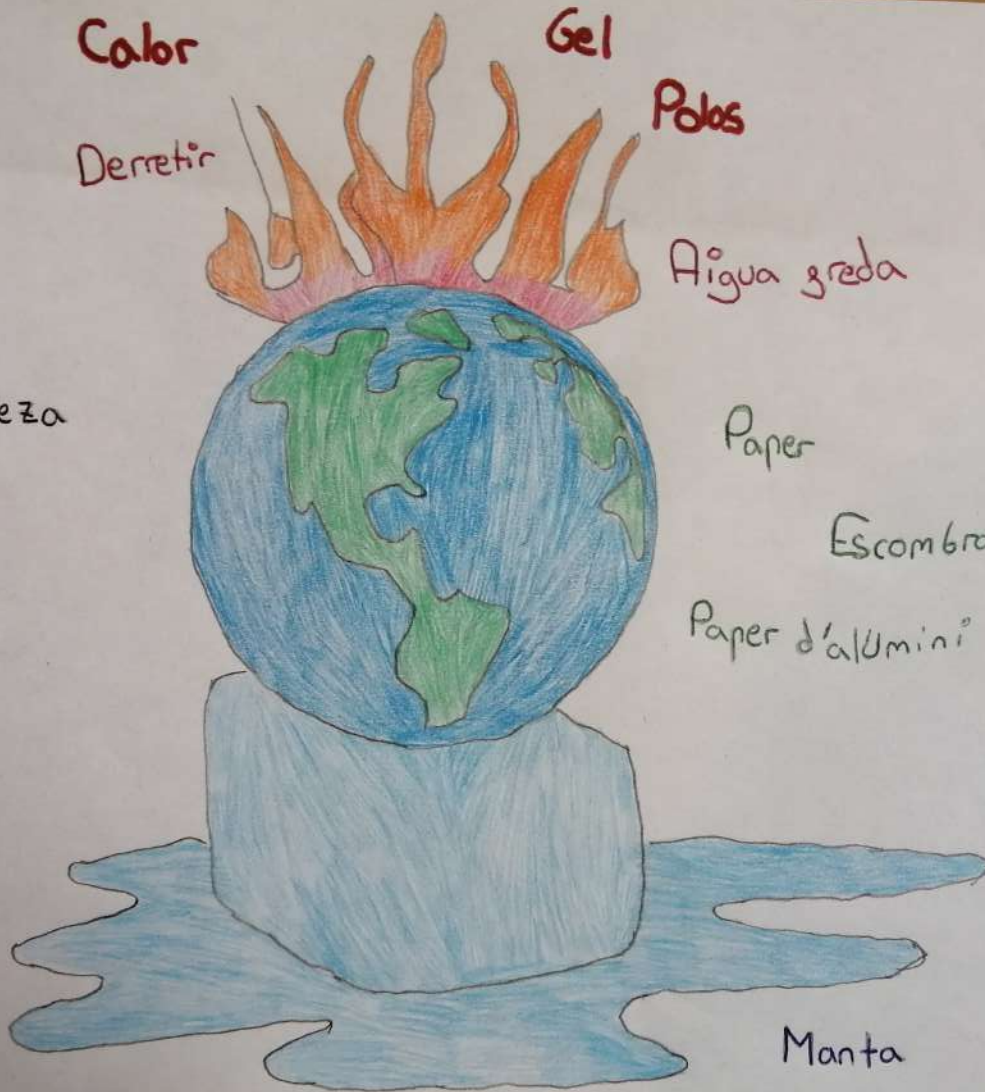 Calor
Gel
Polos
Derretir
Aigua greda
eza
Paper
Escombra
Paper d'alumini
Manta